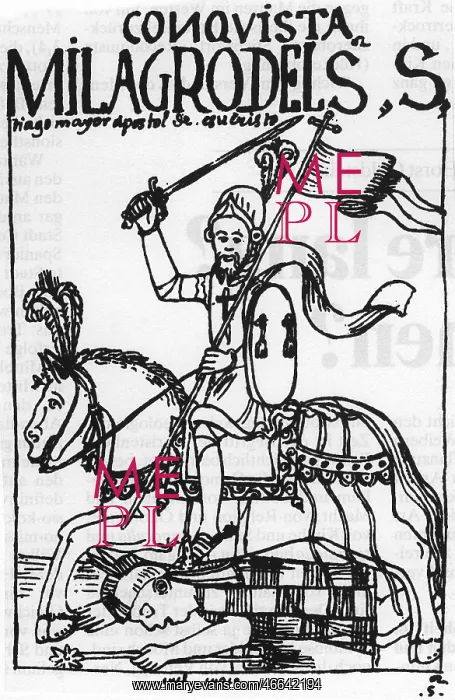 CONQVISTA
MILAGRO DEL S, S,
tiago mayor apostol de. esucristo
ME
PL
ME
PL
www.maryevans.com/46642194